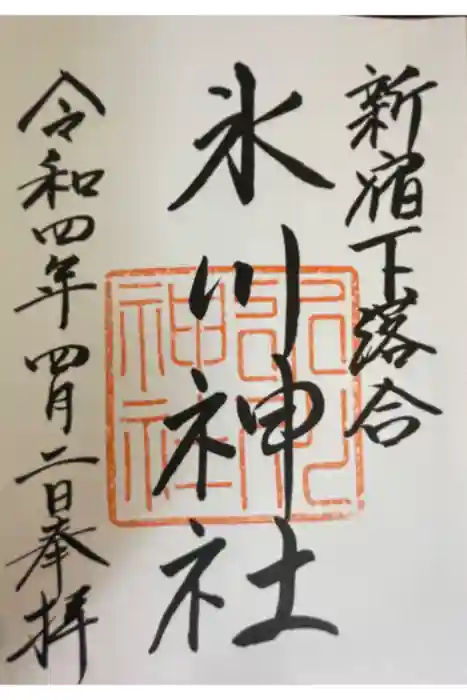 新宿下落合
氷川神社
氷川神社
令和四年四月二日奉拝